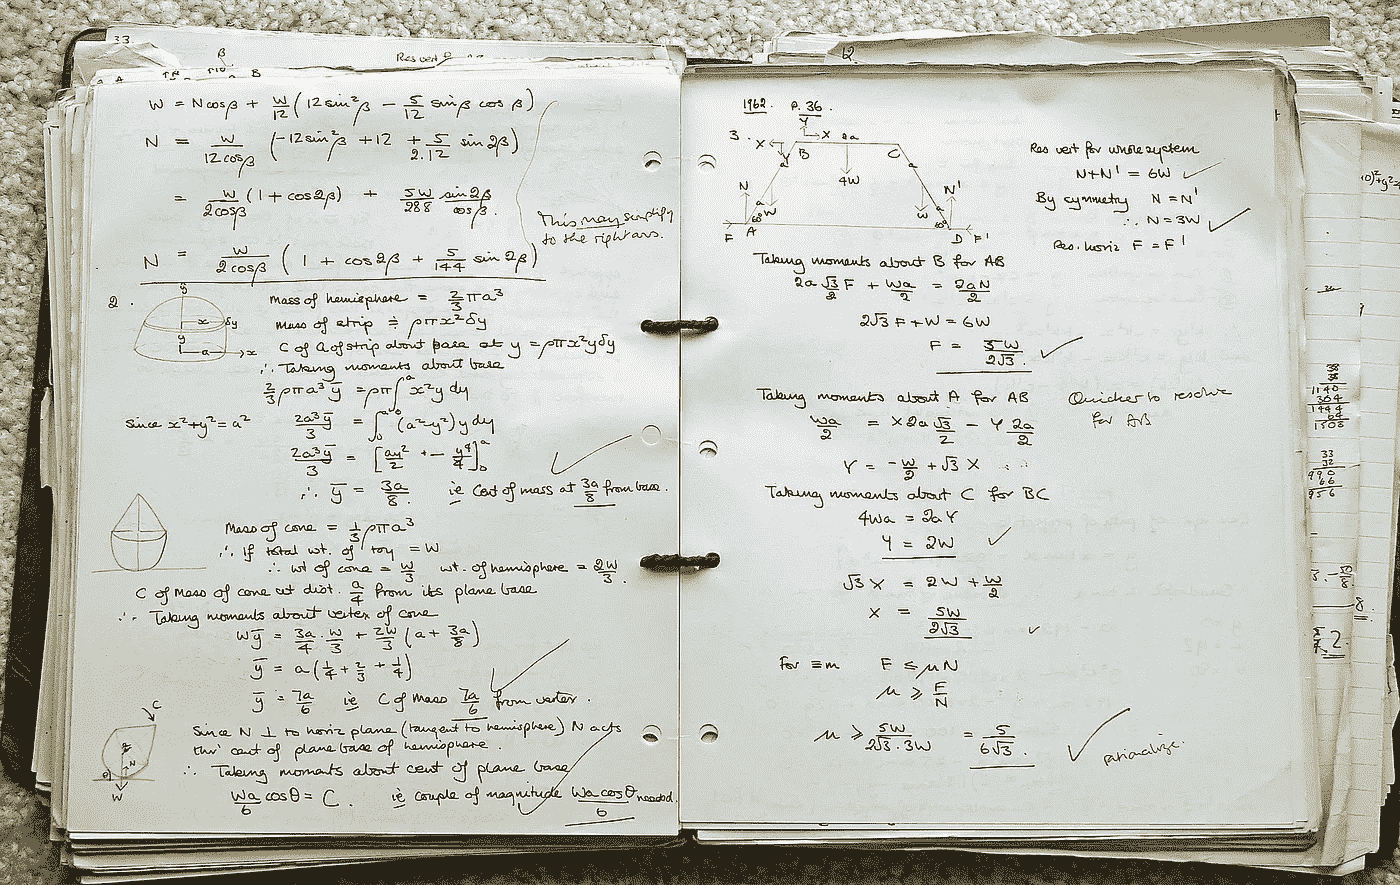 33
β
Res vert
B
W = N cosβ + W/12 (12 sin²β − 5/12 sinβ cos β)
N = W/12cosβ (−12 sin²β + 12 + 5/2.12 sin 2β)
= W/2cosβ (1 + cos2β) + 5W/288 sin2β/cosβ.
This may simplify
to the right ans.
N = W/2cosβ (1 + cos 2β + 5/144 sin 2β)
2.
y
x
δy
y
a
x
Mass of hemisphere = 2/3 πa³
Mass of strip ≏ ρπx²δy
C of G of strip about base at y = ρπx²yδy
∴ Taking moments about base
2/3 ρπa³ȳ = ρπ∫₀ᵃ x²y dy
Since x²+y² = a² 2a³ȳ/3 = ∫₀ᵃ (a²−y²) y dy
2a³ȳ/3 = [ay²/2 + − y⁴/4]₀ᵃ
∴ ȳ = 3a/8. ie Cent of mass at 3a/8 from base.
Mass of cone = 1/3 ρπa³
∴ If total wt. of toy = W
∴ wt of cone = W/3 wt. of hemisphere = 2W/3.
C of Mass of cone at dist. a/4 from its plane base
∴ Taking moments about vertex of cone
Wȳ = 3a/4 . W/3 + 2W/3 (a + 3a/8)
ȳ = a(1/4 + 2/3 + 1/4)
ȳ = 7a/6 ie C of Mass 7a/6 from vertex.
C
θ
N
W
Since N ⊥ to horiz plane (tangent to hemisphere) N acts
thro' cent of plane base of hemisphere.
∴ Taking moments about cent of plane base
Wa/6 cosθ = C. ie couple of magnitude Wa cosθ/6 needed.
12.
1962. P. 36.
3.
Y
X
2a
X
Y
B
C
a
a
4W
N
N'
a
W
W
a
60°
60°
F
A
D
F'
Res vert for whole system
N+N' = 6W ✓
By symmetry N = N'
∴ N = 3W ✓
Res. horiz F = F'
Taking moments about B for AB
2a √3/2 F + Wa/2 = 2aN/2
2√3 F + W = 6W
F = 5W/2√3 ✓
Taking moments about A for AB
Quicker to resolve
for AB
Wa/2 = X 2a √3/2 − Y 2a/2
Y = −W/2 + √3 X
Taking moments about C for BC
4Wa = 2aY
Y = 2W ✓
√3 X = 2W + W/2
X = 5W/2√3 ✓
For ≡m F ≤ μN
μ ≥ F/N
μ ≥ 5W/2√3.3W = 5/6√3. ✓
rationalize.
38
38
1140
304
1444
64
1508
33
32
990
66
956
8.
2.